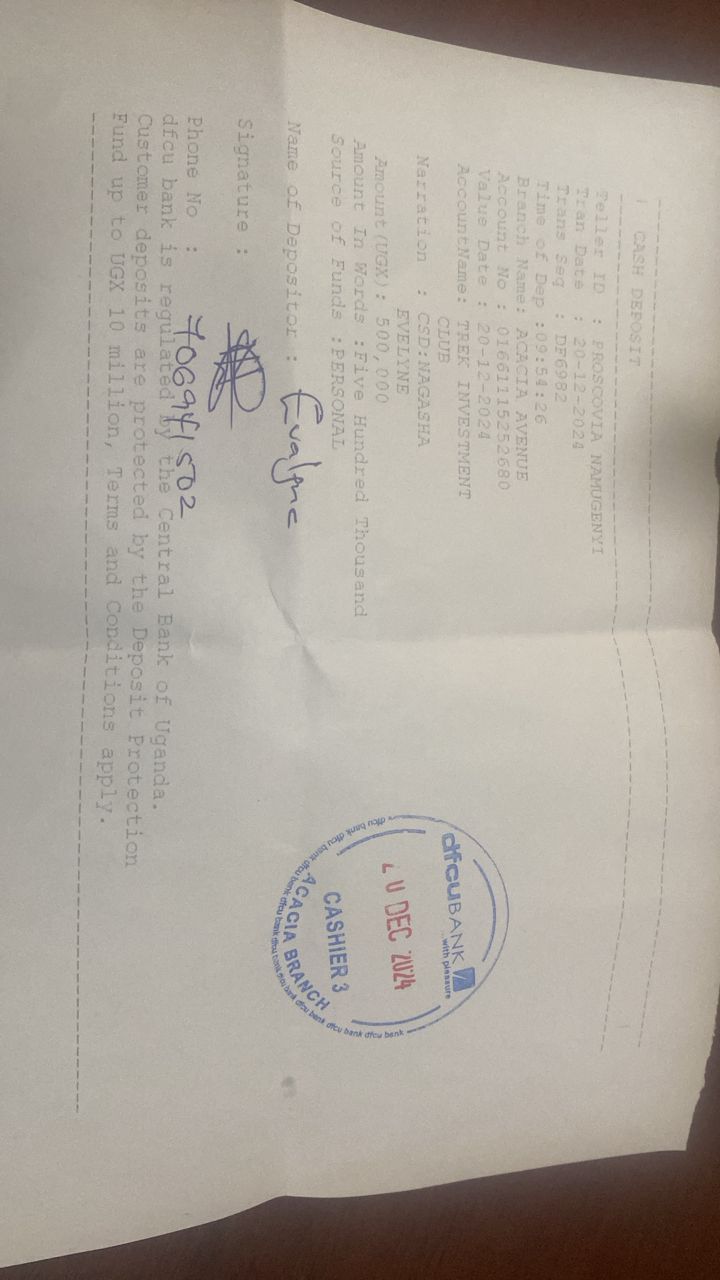 CASH DEPOSIT
Teller ID : PROSCOVIA NAMUGENYI
Tran Date : 20-12-2024
Trans Seq : DF6982
Time of Dep :09:54:26
Branch Name: ACACIA AVENUE
Account No : 01661115252680
Value Date : 20-12-2024
AccountName: TREK INVESTMENT
CLUB
Narration : CSD:NAGASHA
EVELYNE
Amount(UGX): 500,000
Amount In Words :Five Hundred Thousand
Source of Funds :PERSONAL
Name of Depositor : Evalyne
Signature :
Phone No :
dfcu bank is regulated by the Central Bank of Uganda.
Customer deposits are protected by the Deposit Protection
Fund up to UGX 10 million, Terms and Conditions apply.
dfcu BANK
with pleasure
20 DEC 2024
CASHIER 3
ACACIA BRANCH